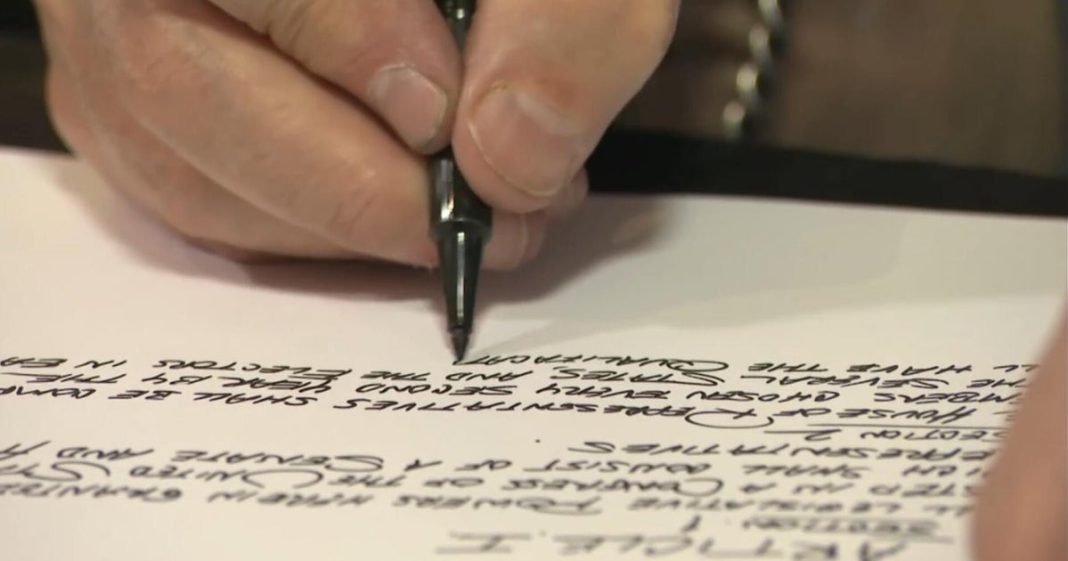 ARTICLE I
SECTION 1
LL LEGISLATIVE POWERS HEREIN GRANTED
STED IN A CONGRESS OF THE UNITED STA
ICH SHALL CONSIST OF A SENATE AND H
EPRESENTATIVES
ECTION 2
E HOUSE OF REPRESENTATIVES SHALL BE COMP
MBERS CHOSEN EVERY SECOND YEAR BY THE
HE SEVERAL STATES AND THE ELECTORS IN EA
LL HAVE THE QUALIFICAT